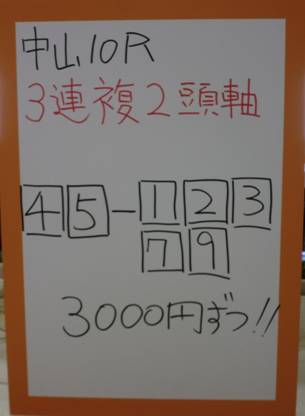 中山10R
3連複2頭軸
45-123
79
3000円ずつ!!